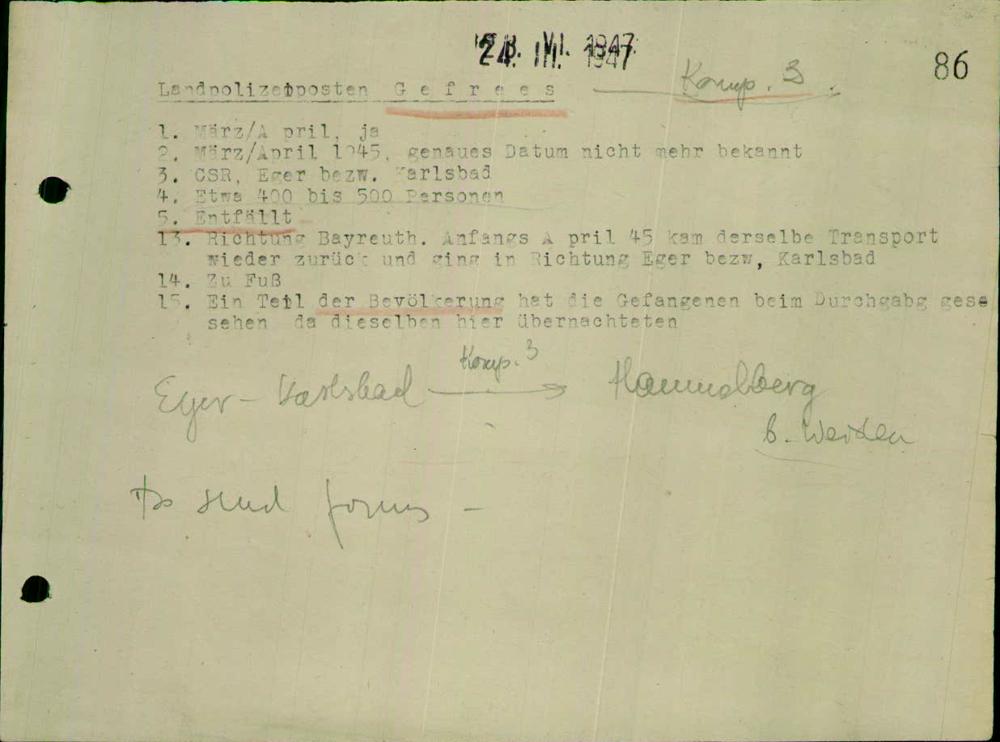 24. III. 1947
86
Landpolizeiposten G e f r e e s
Komp. 3
1. März/A pril, ja
2. März/April 1945, genaues Datum nicht mehr bekannt
3. CSR, Eger bezw. Karlsbad
4. Etwa 400 bis 500 Personen
5. Entfällt
13. Richtung Bayreuth. Anfangs A pril 45 kam derselbe Transport
wieder zurück und ging in Richtung Eger bezw, Karlsbad
14. Zu Fuß
15. Ein Teil der Bevölkerung hat die Gefangenen beim Durchgabg gese
sehen da dieselben hier übernachteten
Komp. 3
Eger - Karlsbad → Hammelberg
b. Weiden
to send forms -